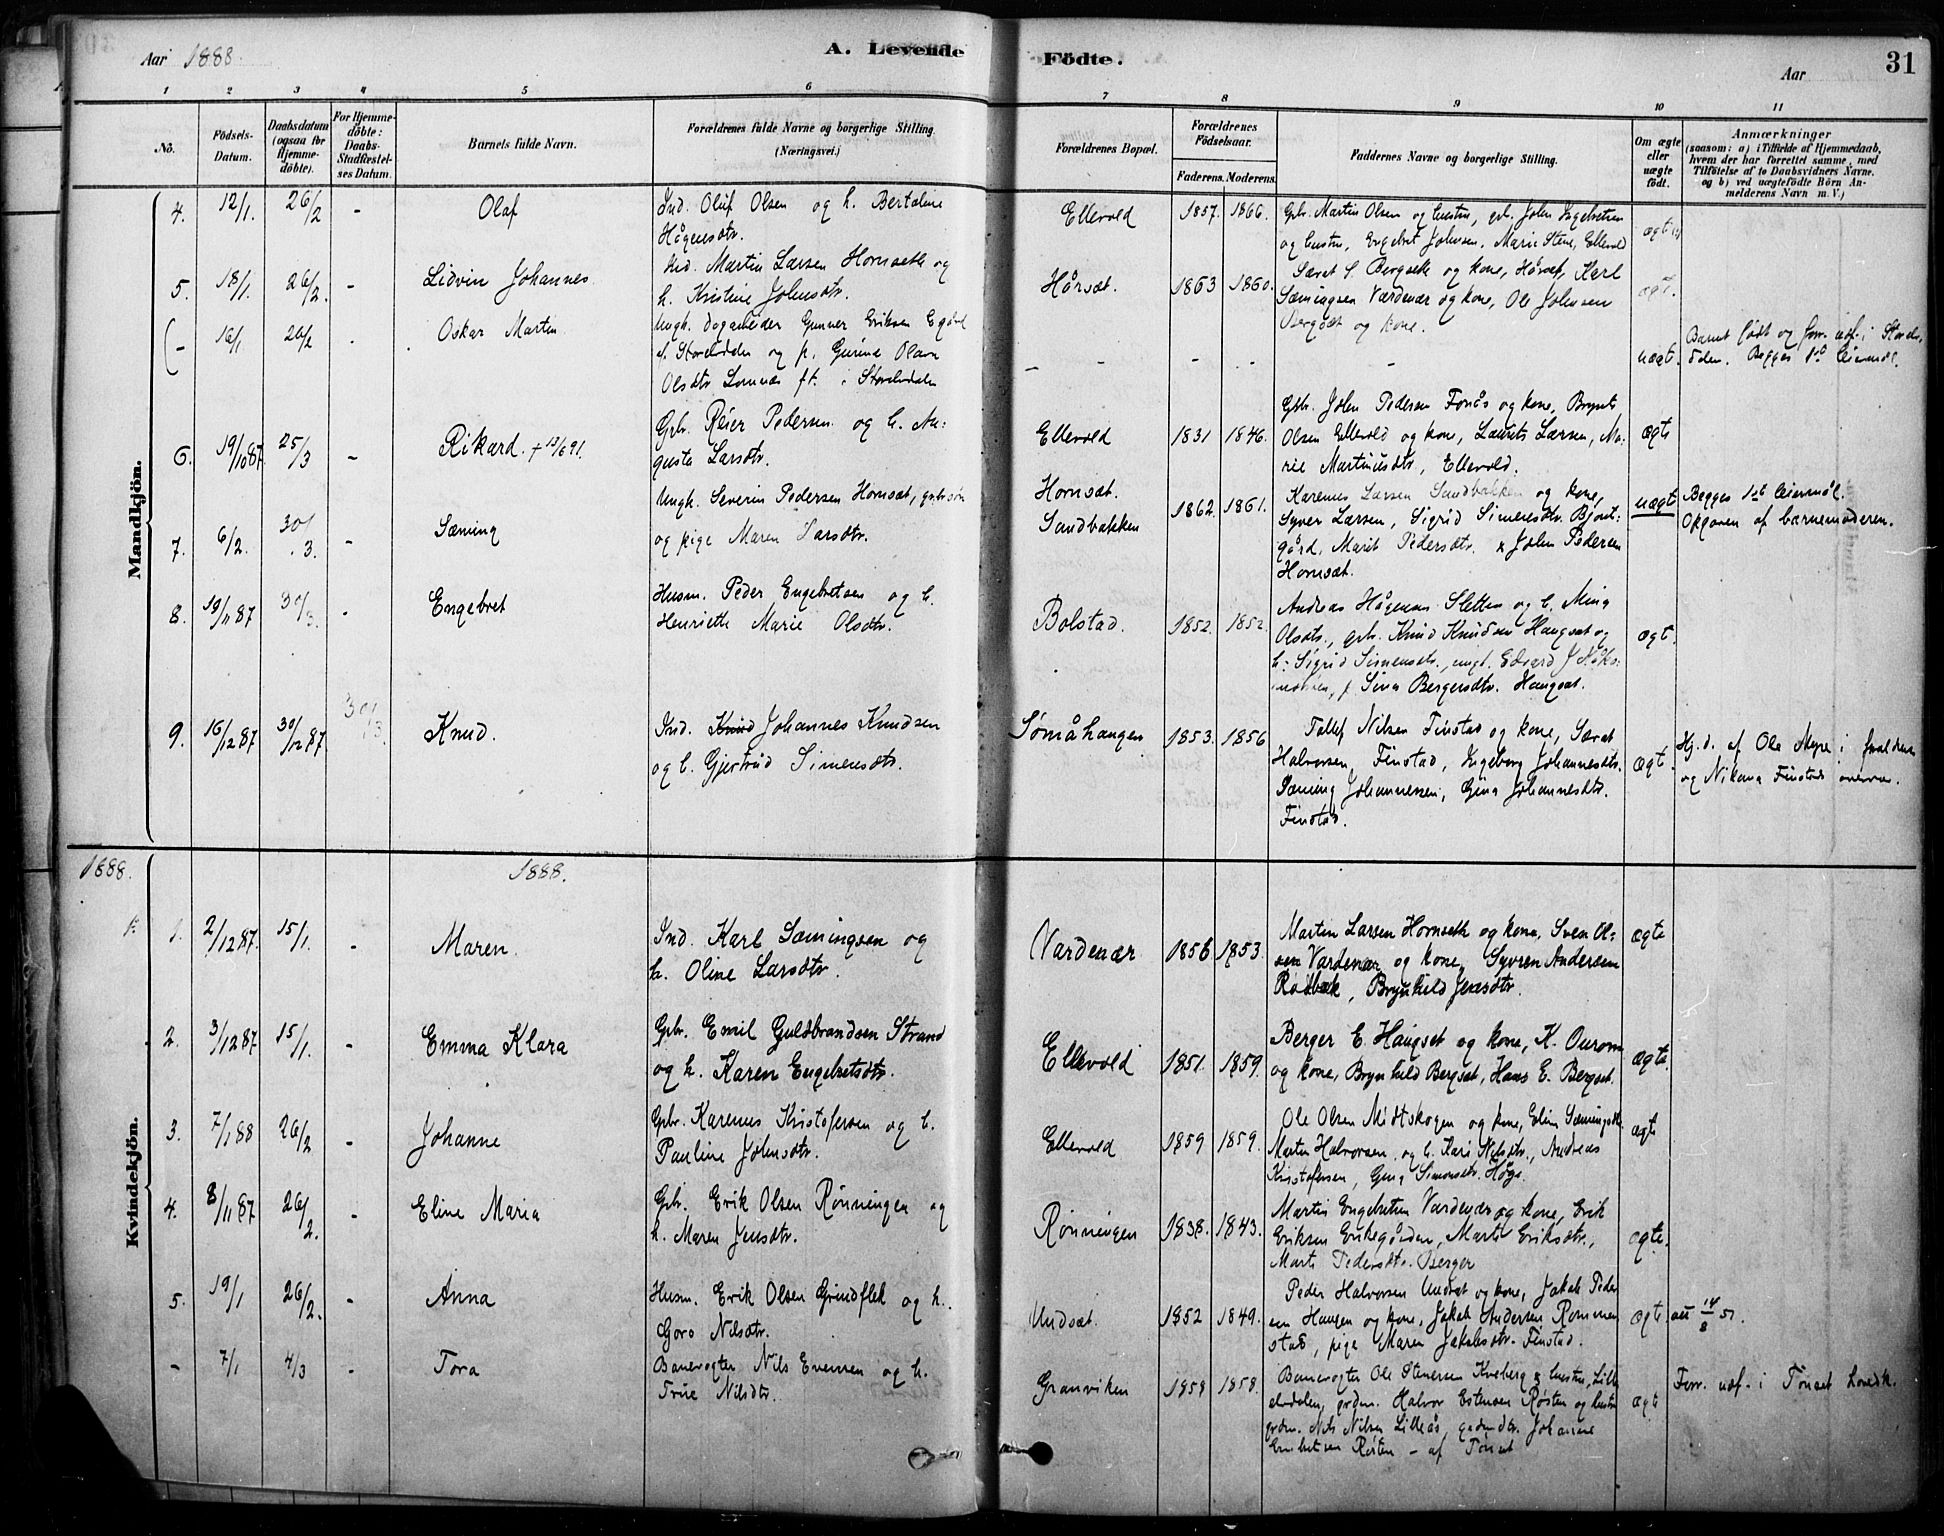 Aar 1888.
A. Levende Födte.
Aar
31
1 2 3 4 5 6 7 8 9 10 11
No.
Födsels-Datum.
Daabsdatum (ogsaa for Hjemme-döbte).
For Hjemme-döbte: Daabs-Stadfæstel-ses Datum.
Barnets fulde Navn.
Forældrenes fulde Navne og borgerlige Stilling. (Næringsvei.)
Forældrenes Bopæl.
Forældrenes Födselsaar.
Faderens. Moderens.
Faddernes Navne og borgerlige Stilling.
Om ægte eller uægte födt.
Anmærkninger
(saasom: a) i Tilfælde af Hjemmedaab, hvem der har forrettet samme, med Tilföielse af to Daabsvidners Navne. og b) ved uægtefödte Börn An-melderens Navn m. V.)
Mandkjön.
4. 12/1. 26/2 - Olaf
Ind. Oluf Olsen og h. Berteline
Hågensdtr.
Ellevold 1857. 1866.
Gbr. Martin Olsen og hustru, gbr. John Ingebretsen
og hustru, Engebret Johnsen, Marie Stene, Ellevold
ægte
5. 18/1. 26/2. - Lidvin Johannes
Ind. Martin Larsen Hornseth og
h. Kristine Johnsdtr.
Hårsæt. 1863 1860.
Særat S. Bergseth og kone, Hårset, Karl
Sæmingsen Vardenær og kone, Ole Johnsen
Bergset og kone.
ægt.
- 16/1 26/2 . Oskar Martin
Ungk. dagarbeider Gunner Eriksen Egård
f. Storelvdalen og p. Gurine Olava
Olsdtr Lomnæs ft. i Storelvdalen
- - - -
uægt.
Barnet født og forr. udf. i Storelv-
dalen. Begges 1st leiermål.
6. 19/10 87. 25/3 - Rikard. + 13/6 91.
Gbr. Reier Pedersen og h. Au-
gusta Larsdtr.
Ellevold 1831 1846.
Gbr. John Pedersen Fonås og kone, Brynt
Olsen Ellevold og kone, Laurits Larsen, Ma-
rie Martinusdtr, Ellevold.
ægte
7. 6/2. 30/3. - Sæming
Ungk. Severin Pedersen Hornsæt, gbrsøn
og pige Maren Larsdtr.
Hornsæt.
Sandbakken 1862. 1861.
Karenus Larsen Sandbakken og kone,
Syver Larsen, Sigrid Simensdtr. Bjont-
gård, Marit Pedersdtr. & John Pedersen
Hornsæt.
uægt
Begges 1st leiermål.
Opgaven af barnemoderen.
8. 19/11 87 30/3. - Engebret
Husm. Peder Engebretsen og h.
Henriette Marie Olsdtr.
Bolstad. 1852. 1852.
Andreas Hågensen Sletten og h. Mina
Olsdtr., gbr. Knud Knudsen Haugset og
h: Sigrid Simensdtr., ungk. Edvard J
p. Sina Bergersdtr. Haugset.
ægt.
9. 16/12 87 30/12 87. 30/3. Knud.
Ind. Knud Johannes Knudsen
og h. Gjertrud Simensdtr.
Sømåhaugen 1853. 1856
Tollef Nilsen Finstad og kone, Særat
Halvorsen Finstad, Ingeborg Johannesdtr.
Sæming Johannessen, Gina Johannesdtr.
Finstad.
ægt.
Hj.d. af Ole Myre i foreldrenes
og Nikana Finstads overvær.
1888. 1888.
Kvindekjön.
1. 2/12 87. 15/1. - Maren.
Ind. Karl Sæmingsen og
h. Oline Larsdtr.
Vardenær 1856 1853.
Martin Larsen Hornseth og kone, Sven Ol-
sen Vardenær og kone, Syvren Andersen
Rødbæk, Brynhild Jensdtr.
ægte
2. 3/12 87 15/1. - Emma Klara
Gbr. Emil Guldbrandsen Strand
og h. Karen Engebretsdtr.
Ellevold 1851. 1859.
Berger E. Haugset og kone, K. Ourom
og kone, Brynhild Bergset, Hans E. Bergset.
ægte.
3. 7/1 88 26/2 - Johanne
Gbr. Karenus Kristofersen og h.
Pauline Johnsdtr.
Ellevold 1859 1859.
Ole Olsen Midtskogen og kone, Elin Sæmingsdtr
Martin Halvorsen og h. Kari Nilsdtr., Andreas
Kristofersen, Gina Simensdtr. Høgs.
ægte
4. 8/11 87 26/2. - Eline Maria
Gbr. Erik Olsen Rønningen og
h. Maren Jensdtr.
Rønningen 1838. 1843.
Martin Engebretsen Vardenær og kone, Erik
Eriksen Erikegården, Marte Eriksdtr.,
Marte Pedersdtr. Berger
ægte.
5. 19/1 26/2. - Anna
Husm. Erik Olsen Grindflek og h.
Goro Nilsdtr.
Undsæt. 1852 1849.
Peder Halvorsen Undset og kone, Jakob Peder-
sen Haugen og kone, Jakob Andersen Rommen-
stad, pige Maren Jakobsdtr. Finstad.
ægte
att 14/8 51.
- 7/1 4/3 - Tora
Banevogter Nils Evensen og h.
Trine Nilsdtr.
Granviken 1858 1858.
Banevogter Ole Stenersen Kveberg & hustru, Lille-
elvdalen, grdm. Halvor Estensen Røsten og hustru
grdm. Nils Nilsen Lilleås, grdmdtr. Johanne
Embretsen Røsten - af Tönset
ægte
Forr. udf. i Tönset hovedk.